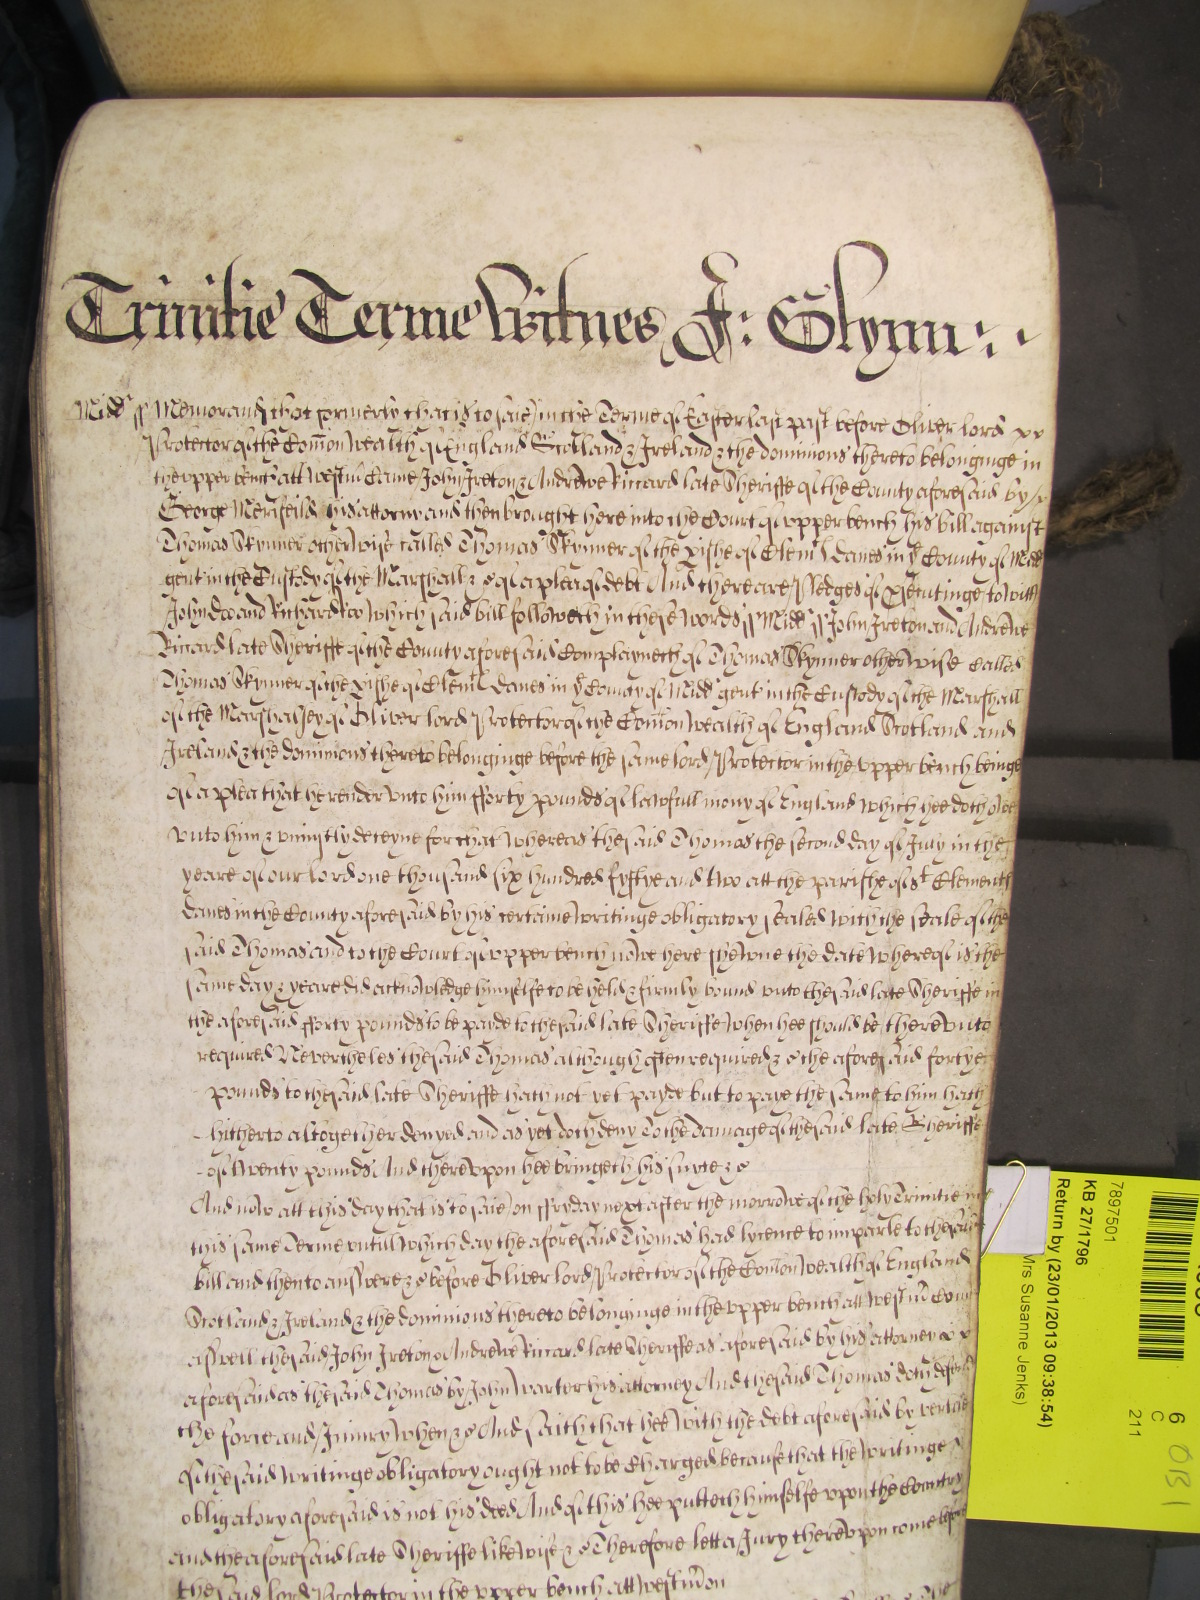 Trinitie Terme Witnes J: Glynn
Midd ss Memorand that formerly that is to saie in the Terme of Easter last past before Oliver lord
Protector of the Comon Wealth of England Scotland & Ireland & the dominions thereto belonginge in
the upper bench att Westm Came John Ireton & Andrewe Riccard late Sheriffe of the County aforesaid by
George Merifeild his attorny and then brought here into the Court of upper bench his bill against
Thomas Skynner otherwise called Thomas Skynner of the pishe of Clem Danes in ye County of Midd
gent in the Custody of the Marshall &c of a plea of debt And there are Pledges of prosecutinge to witt
John Doo and Richard Roo Which said bill followeth in these words ss Midd ss John Ireton and Andrewe
Riccard late Sheriffe of the County aforesaid Complayneth of Thomas Skynner otherwise called
Thomas Skynner of the pishe of Clemt Danes in ye County of Midd gent in the Custody of the Marshall
of the Marshalsey of Oliver lord Protector of the Comon Wealth of England Scotland and
Ireland & the dominions thereto belonginge before the same lord Protector in the upper bench beinge
of a plea that he render unto him fforty pounds of lawfull mony of England which hee doth owe
unto him & uniustly deteyne for that whereas the said Thomas the second day of July in the
yeare of our lord one thousand six hundred fyftye and two att the parishe of st Clement
danes in the County aforesaid by his certaine writinge obligatory sealed with the seale of the
said Thomas and to the Court of upper bench nowe here shewne the date whereof is the
same day & yeare did acknowledge himselfe to be held & firmly bound unto the said late Sheriffe in
the aforesaid fforty pounds to be payde to the said late Sheriffe when hee should be thereunto
required Nevertheles the said Thomas although often required &c the aforesaid fortye
pounds to the said late Sheriffe hath not yet payde but to paye the same to him hath
hitherto altogether denyed and as yet doth deny To the damage of the said late Sheriffe
of twenty pounds And thereupon hee bringeth his suyte &c
And now att this day that is to saie on ffryday next after the morrowe of the holy Trinitie in
this same Terme untill which day the aforesaid Thomas had lycence to imparle to the said
bill and then to answere &c before Oliver lord Protector of the Comon Wealth of England
Scotland & Ireland & the dominions thereto belonginge in the upper bench att Westm Come
aswell the said John Ireton & Andrewe Riccard late Sheriffe as aforesaid by his attorney
aforesaid as the said Thomas by John Warter his attorney And the said Thomas doth defend
the force and Iniury when &c And saith that hee with the debt aforesaid by vertue
of the said writinge obligatory ought not to be Charged because that the writinge
obligatory aforesaid is not his deed And of this hee putteth himselfe upon the Country
and the aforesaid late Sheriffe likewise &c Therefore lett a Jury thereupon come before
the said lord Protector in the upper bench att Westm on
7897501
KB 27/1796
Return by (23/01/2013 09:38:54)
Mrs Susanne Jenks)
6
C
211
OBI